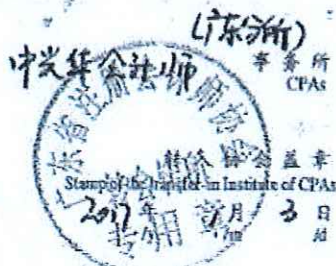 (广东分所)
中兴华会计师
事务所
CPAs
转入协会盖章
Stamp of the transfer-in Institute of CPAs
2017年 月 3 日
/y /m /d
广东省注册会计师协会
专用章